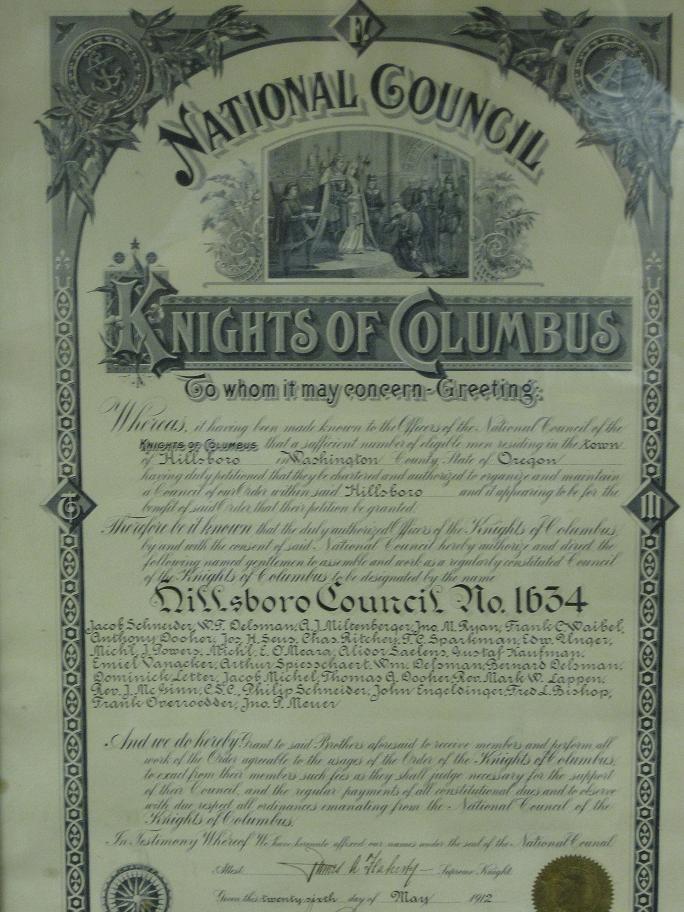 F.
NATIONAL COUNCIL
KNIGHTS OF COLUMBUS
To whom it may concern - Greeting:
Whereas, it having been made known to the Officers of the National Council of the
KNIGHTS OF COLUMBUS that a sufficient number of eligible men residing in the town
of Hillsboro in Washington County, State of Oregon
having duly petitioned that they be chartered and authorized to organize and maintain
a Council of our Order within said Hillsboro and it appearing to be for the
benefit of said Order that their petition be granted:
Therefore be it known that the duly authorized Officers of the Knights of Columbus,
by and with the consent of said National Council hereby authorize and direct the
following named gentlemen to assemble and work as a regularly constituted Council
of the Knights of Columbus to be designated by the name
Hillsboro Council No. 1634
Jacob Schneider, W.F. Delsman, A.J. Miltenberger, Jno. M. Ryan, Frank C. Waibel,
Anthony Dooher, Jos. H. Seus, Chas. Ritchey, T.C. Sparkman, Edw. Unger,
Michl. J. Powers, Michl. E. O'Meara, Alidor Saelens, Gustaf Kaufman,
Emiel Vanacker, Arthur Spiesschaert, Wm. Delsman, Bernard Delsman,
Dominick Letter, Jacob Michel, Thomas G. Dooher, Rev. Mark W. Lappen,
Rev. J. McGinn, C.S.C., Philip Schneider, John Engeldinger, Fred L. Bishop,
Frank Overroedder, Jno. P. Meuer
And we do hereby Grant to said Brothers aforesaid to receive members and perform all
work of the Order agreable to the usages of the Order of the Knights of Columbus,
to exact from their members such fees as they shall judge necessary for the support
of their Council, and the regular payments of all constitutional dues and to observe
with due respect all ordinances emanating from the National Council of the
Knights of Columbus.
In Testimony Whereof We have hereunto affixed our names under the seal of the National Council
Attest James A. Flaherty Supreme Knight
Given this twenty sixth day of May 1912